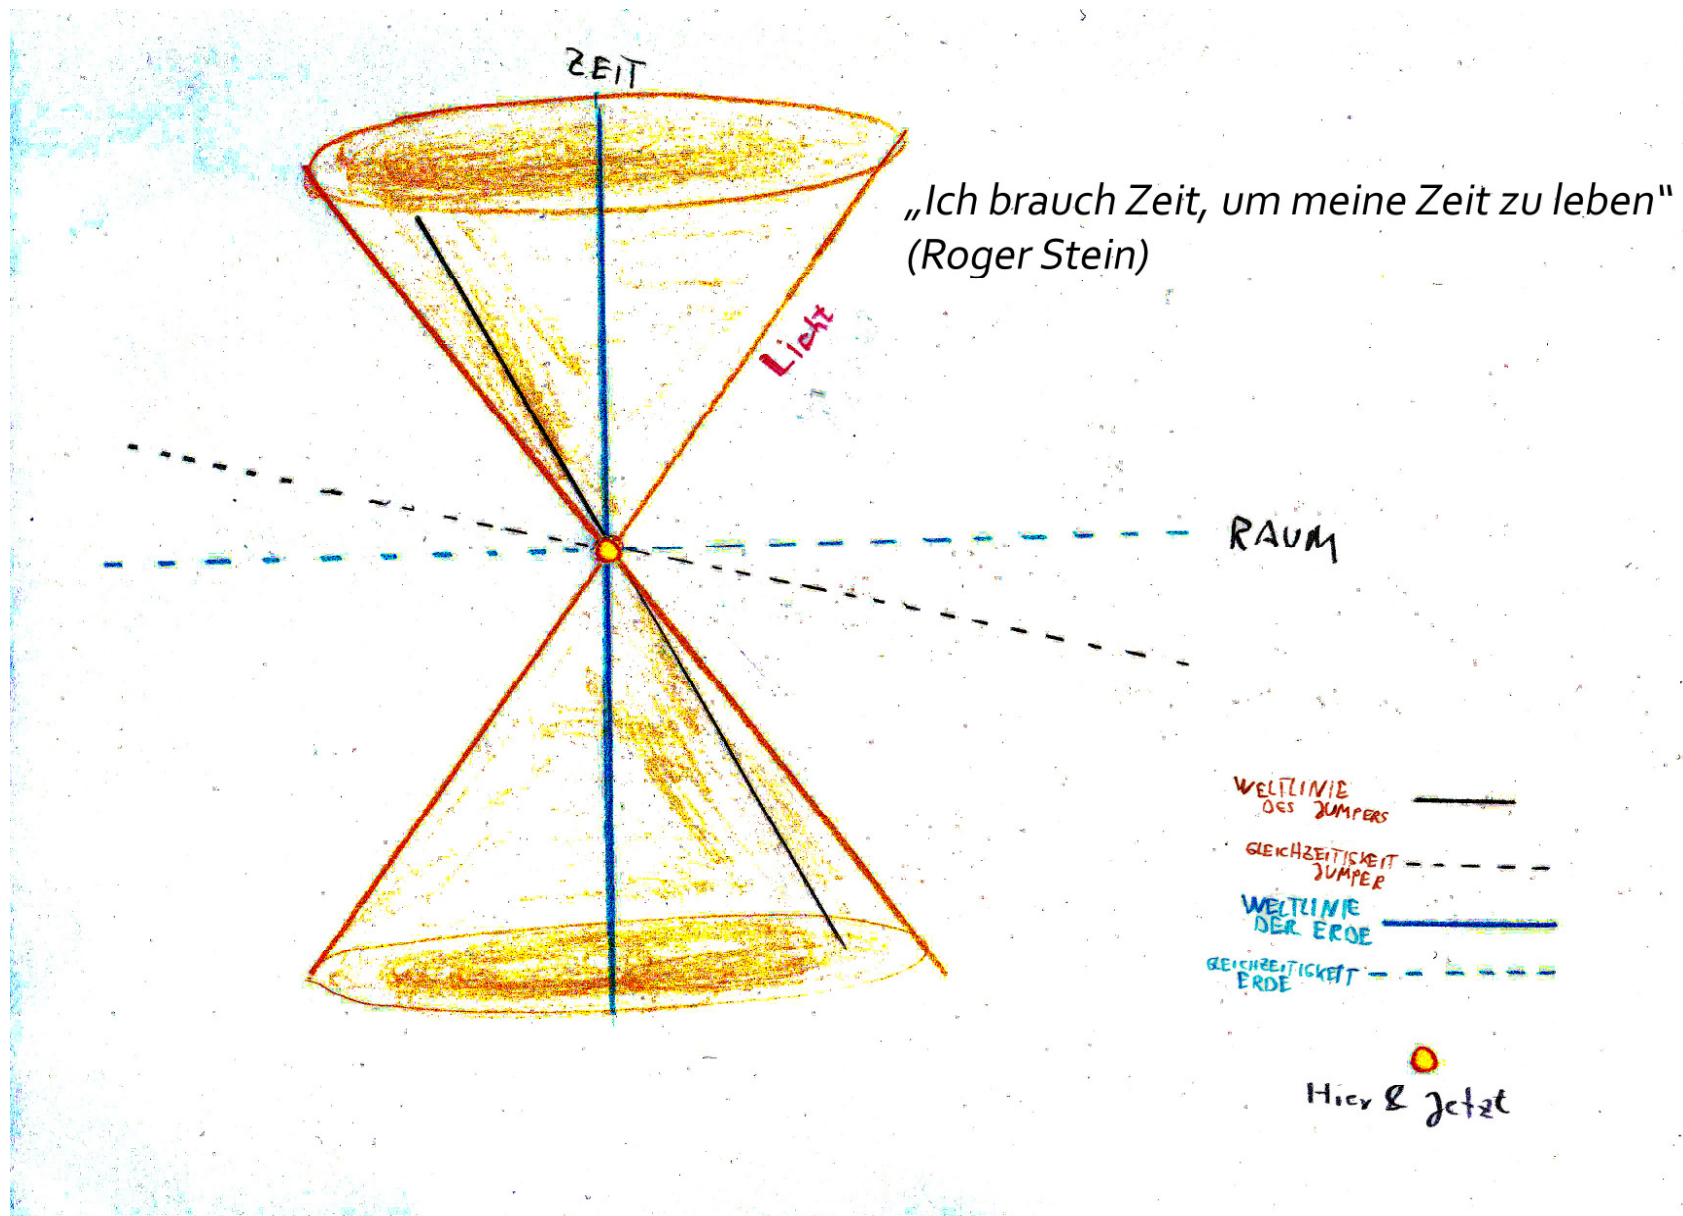 ZEIT
„Ich brauch Zeit, um meine Zeit zu leben“
(Roger Stein)
Licht
RAUM
WELTLINIE
DES JUMPERS
GLEICHZEITIGKEIT
JUMPER
WELTLINIE
DER ERDE
GLEICHZEITIGKEIT
ERDE
Hier & Jetzt